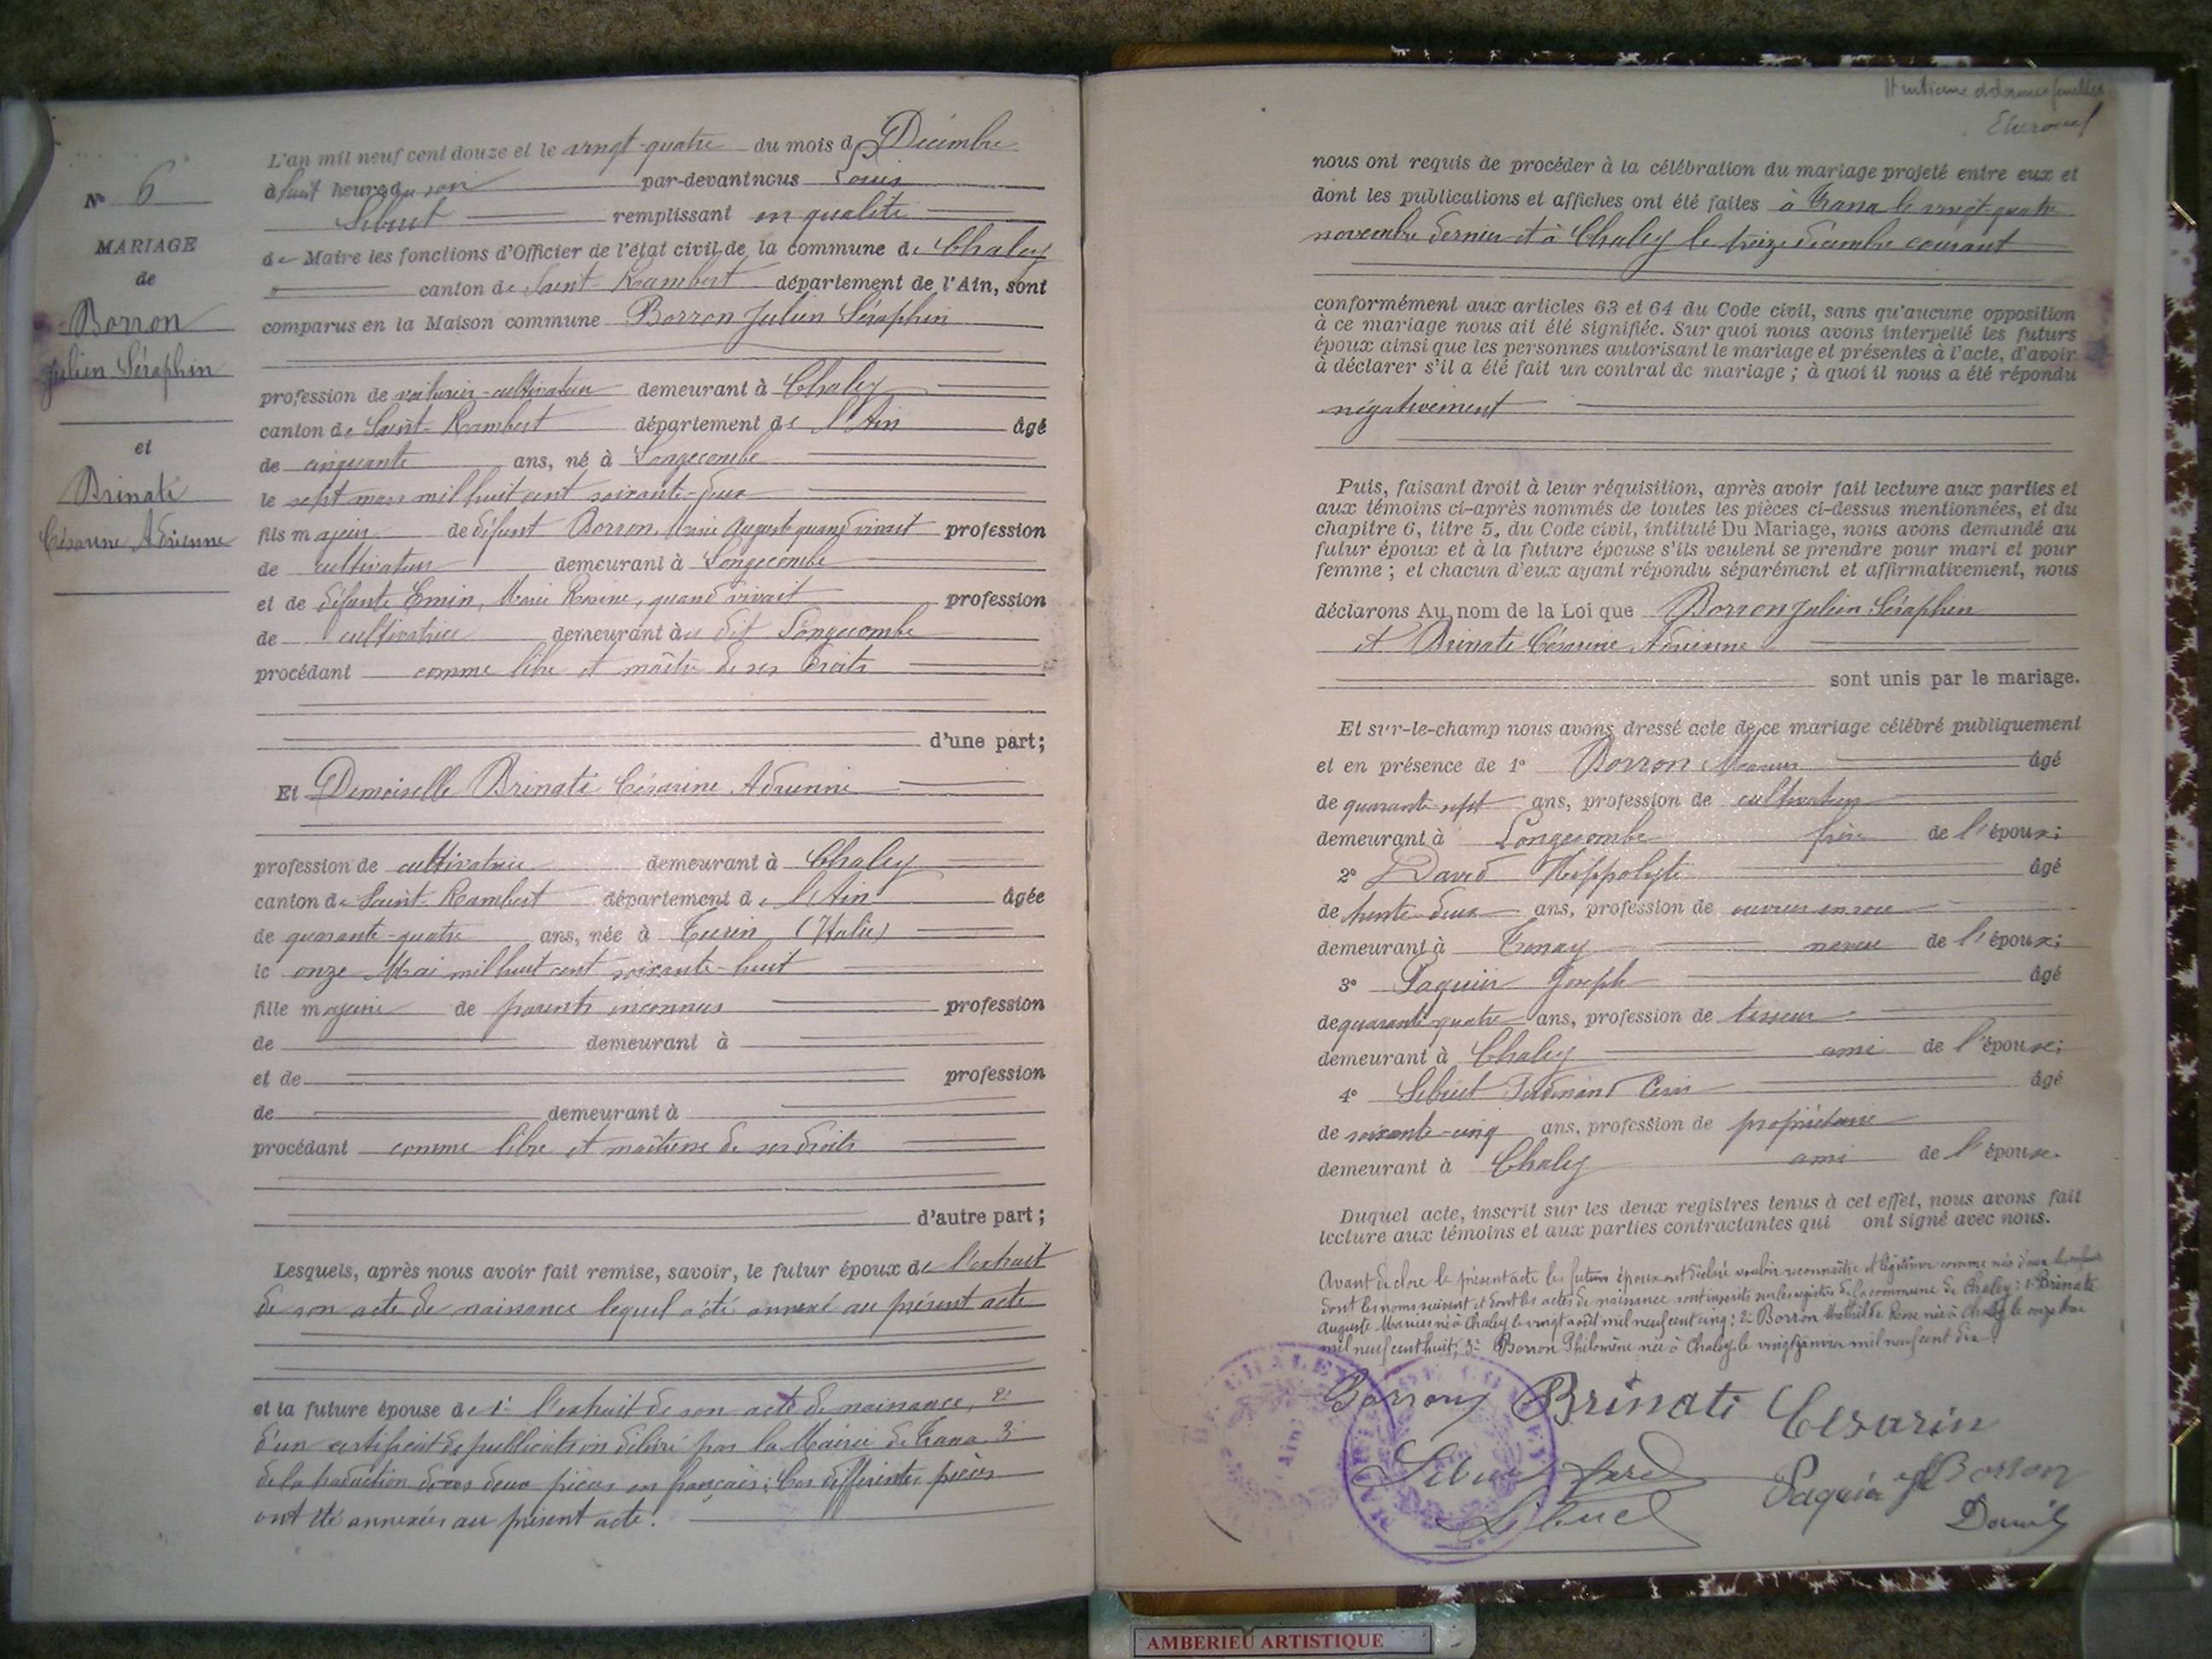 N° 6
MARIAGE
de
Borron
Julien Séraphin
et
Brinati
Césarine Adrienne
L'an mil neuf cent douze et le vingt-quatre du mois de Décembre
à huit heures du soir par-devant nous Louis
Lebuet remplissant en qualité
de Maire les fonctions d'Officier de l'état civil de la commune de Chaley
canton de Saint-Rambert département de l'Ain, sont
comparus en la Maison commune Borron Julien Séraphin
profession de voiturier-cultivateur demeurant à Chaley
canton de Saint-Rambert département de l'Ain âgé
de cinquante ans, né à Longecombe
le sept mars mil huit cent soixante-deux
fils majeur de défunt Borron, Marie Auguste quand vivait profession
de cultivateur demeurant à Longecombe
et de défunte Emin, Marie Rosine, quand vivait profession
de cultivatrice demeurant au dit Longecombe
procédant comme libre et maître de ses droits
d'une part;
Et Demoiselle Brinati Césarine Adrienne
profession de cultivatrice demeurant à Chaley
canton de Saint-Rambert département de l'Ain âgée
de quarante-quatre ans, née à Turin (Italie)
le onze Mai mil huit cent soixante-huit
fille majeure de parents inconnus profession
de demeurant à
et de profession
de demeurant à
procédant comme libre et maîtresse de ses droits
d'autre part;
Lesquels, après nous avoir fait remise, savoir, le futur époux de l'extrait
de son acte de naissance lequel a été annexé au présent acte
et la future épouse de 1° l'extrait de son acte de naissance, 2°
d'un certificat de publication délivré par la Mairie de Trana 3°
de la traduction de ces deux pièces en français; Ces différentes pièces
ont été annexées au présent acte.
nous ont requis de procéder à la célébration du mariage projeté entre eux et
dont les publications et affiches ont été faites à Trana le vingt-quatre
novembre dernier et à Chaley le treize décembre courant
conformément aux articles 63 et 64 du Code civil, sans qu'aucune opposition
à ce mariage nous ait été signifiée. Sur quoi nous avons interpellé les futurs
époux ainsi que les personnes autorisant le mariage et présentes à l'acte, d'avoir
à déclarer s'il a été fait un contrat de mariage; à quoi il nous a été répondu
négativement
Puis, faisant droit à leur réquisition, après avoir fait lecture aux parties et
aux témoins ci-après nommés de toutes les pièces ci-dessus mentionnées, et du
chapitre 6, titre 5, du Code civil, intitulé Du Mariage, nous avons demandé au
futur époux et à la future épouse s'ils veulent se prendre pour mari et pour
femme; et chacun d'eux ayant répondu séparément et affirmativement, nous
déclarons Au nom de la Loi que Borron Julien Séraphin
et Brinati Césarine Adrienne
sont unis par le mariage.
Et sur-le-champ nous avons dressé acte de ce mariage célébré publiquement
et en présence de 1° Borron Marius âgé
de quarante-sept ans, profession de cultivateur
demeurant à Longecombe frère de l'époux;
2° David Hippolyte âgé
de trente-deux ans, profession de ouvrier en soie
demeurant à Tenay neveu de l'époux;
3° Paquier Joseph âgé
de quarante-quatre ans, profession de tisseur
demeurant à Chaley ami de l'épouse;
4° Lebuet Ferdinand César âgé
de soixante-cinq ans, profession de propriétaire
demeurant à Chaley ami de l'épouse.
Duquel acte, inscrit sur les deux registres tenus à cet effet, nous avons fait
lecture aux témoins et aux parties contractantes qui ont signé avec nous.
Avant de clore le présent acte les futurs époux ont déclaré vouloir reconnaître et légitimer comme nés d'eux les enfants
dont les noms suivent et dont les actes de naissance sont inscrits sur les registres de la commune de Chaley: 1° Brinati
Auguste Marius né à Chaley le vingt août mil neuf cent cinq; 2° Borron Mathilde Rose née à Chaley le onze
mil neuf cent huit; 3° Borron Philomène née à Chaley le vingt janvier mil neuf cent dix.
Borron Brinati Cesarin
Lebuet ferd Paquier J Borron
Lebuet David
AMBERIEU ARTISTIQUE